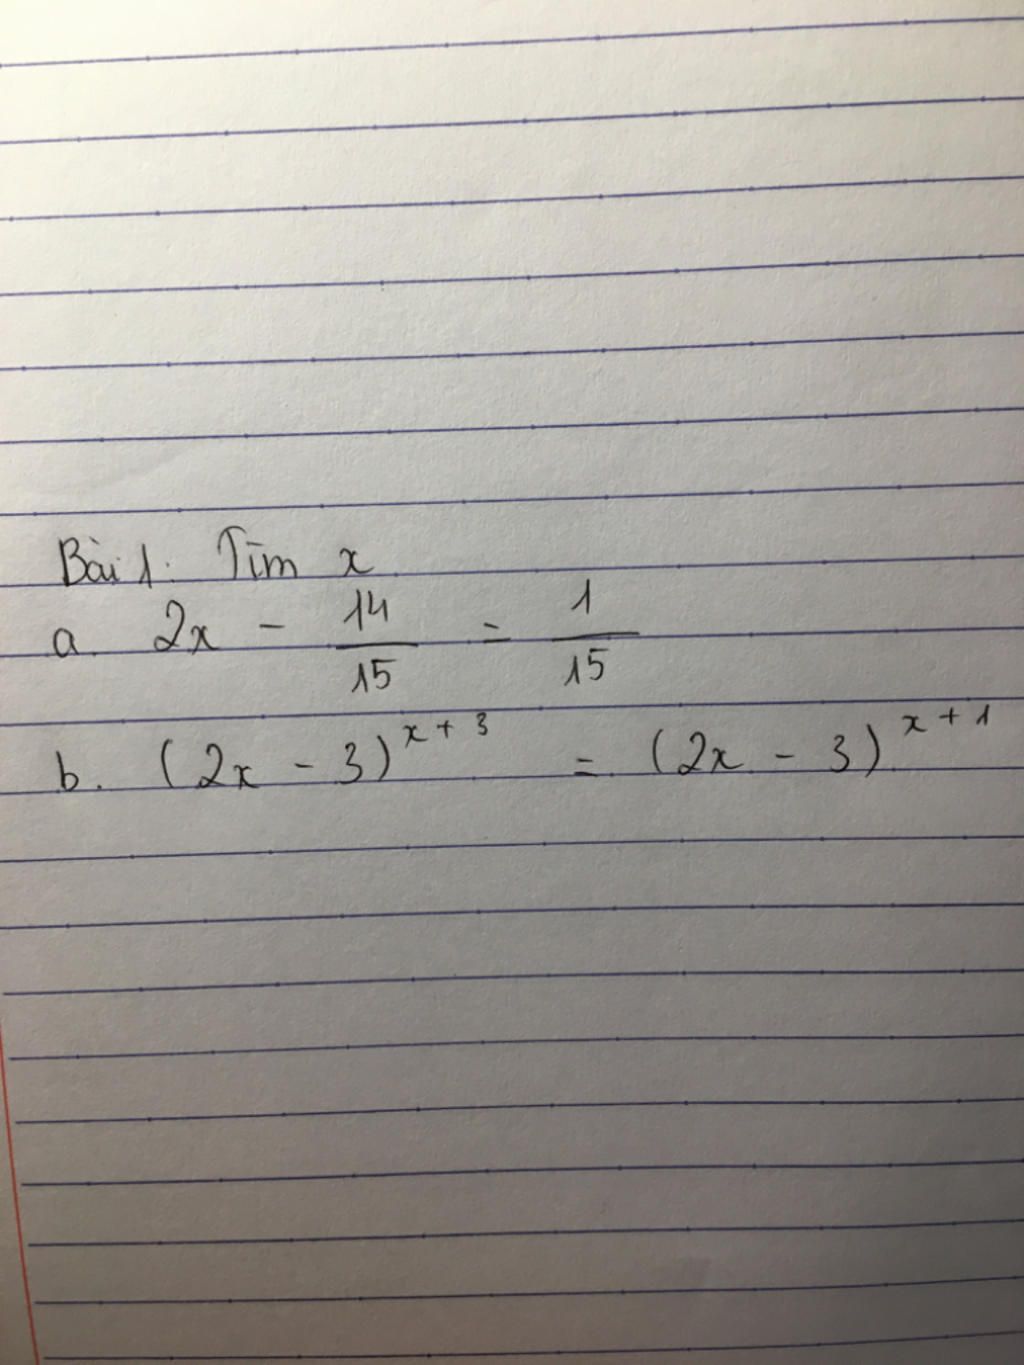 Bài 1: Tìm x
a. 2x - 14/15 = 1/15
b. (2x - 3)^{x + 3} = (2x - 3)^{x + 1}